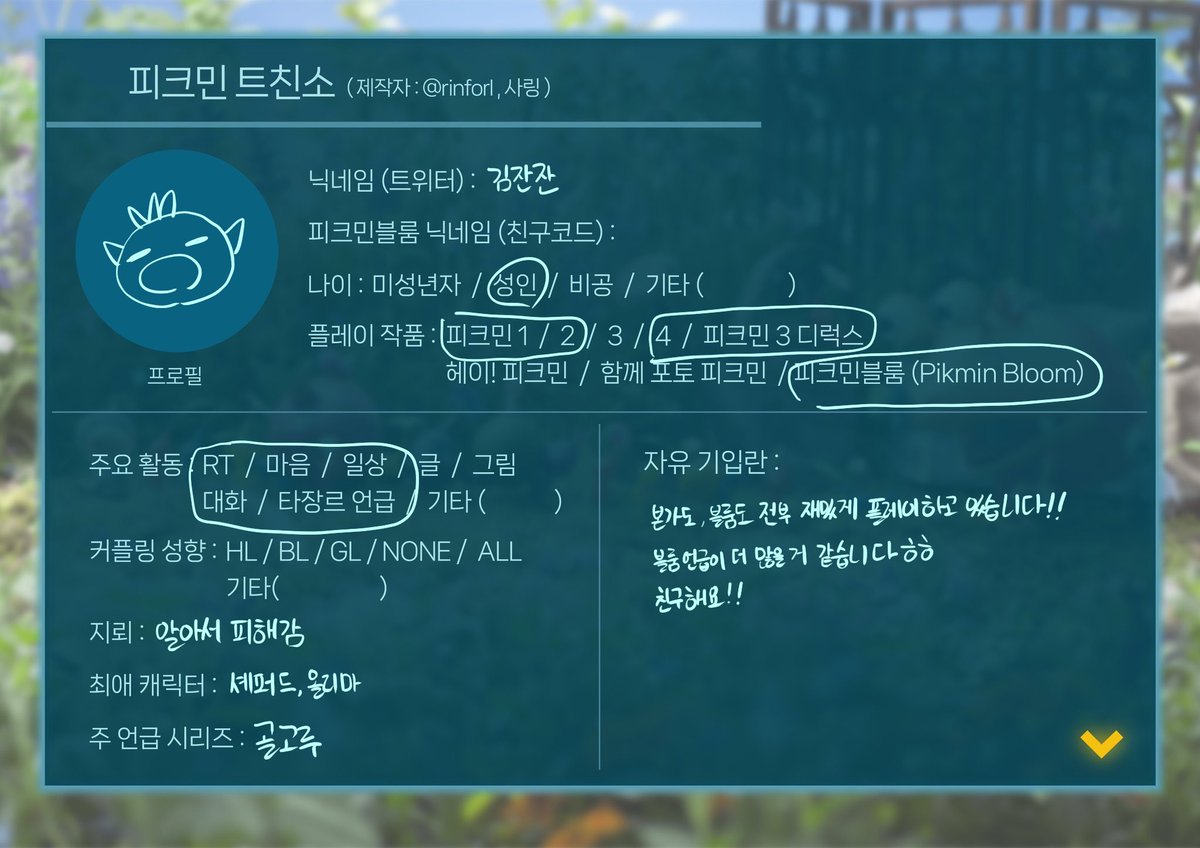 피크민 트친소 (제작자 : @rinforl , 사링)
프로필
닉네임 (트위터) : 김잔잔
피크민블룸 닉네임 (친구코드) :
나이 : 미성년자 / 성인 / 비공 / 기타 ( )
플레이 작품 : 피크민 1 / 2 / 3 / 4 / 피크민 3 디럭스
헤이! 피크민 / 함께 포토 피크민 / 피크민블룸 (Pikmin Bloom)
주요 활동 : RT / 마음 / 일상 / 글 / 그림
대화 / 타장르 언급 / 기타 ( )
커플링 성향 : HL / BL / GL / NONE / ALL
기타( )
지뢰 : 알아서 피해감
최애 캐릭터 : 셰퍼드, 올리마
주 언급 시리즈 : 골고루
자유 기입란 :
본가도, 블룸도 전부 재밌게 플레이하고 있습니다!!
블룸언급이 더 많을 거 같습니다ㅎㅎ
친구해요!!